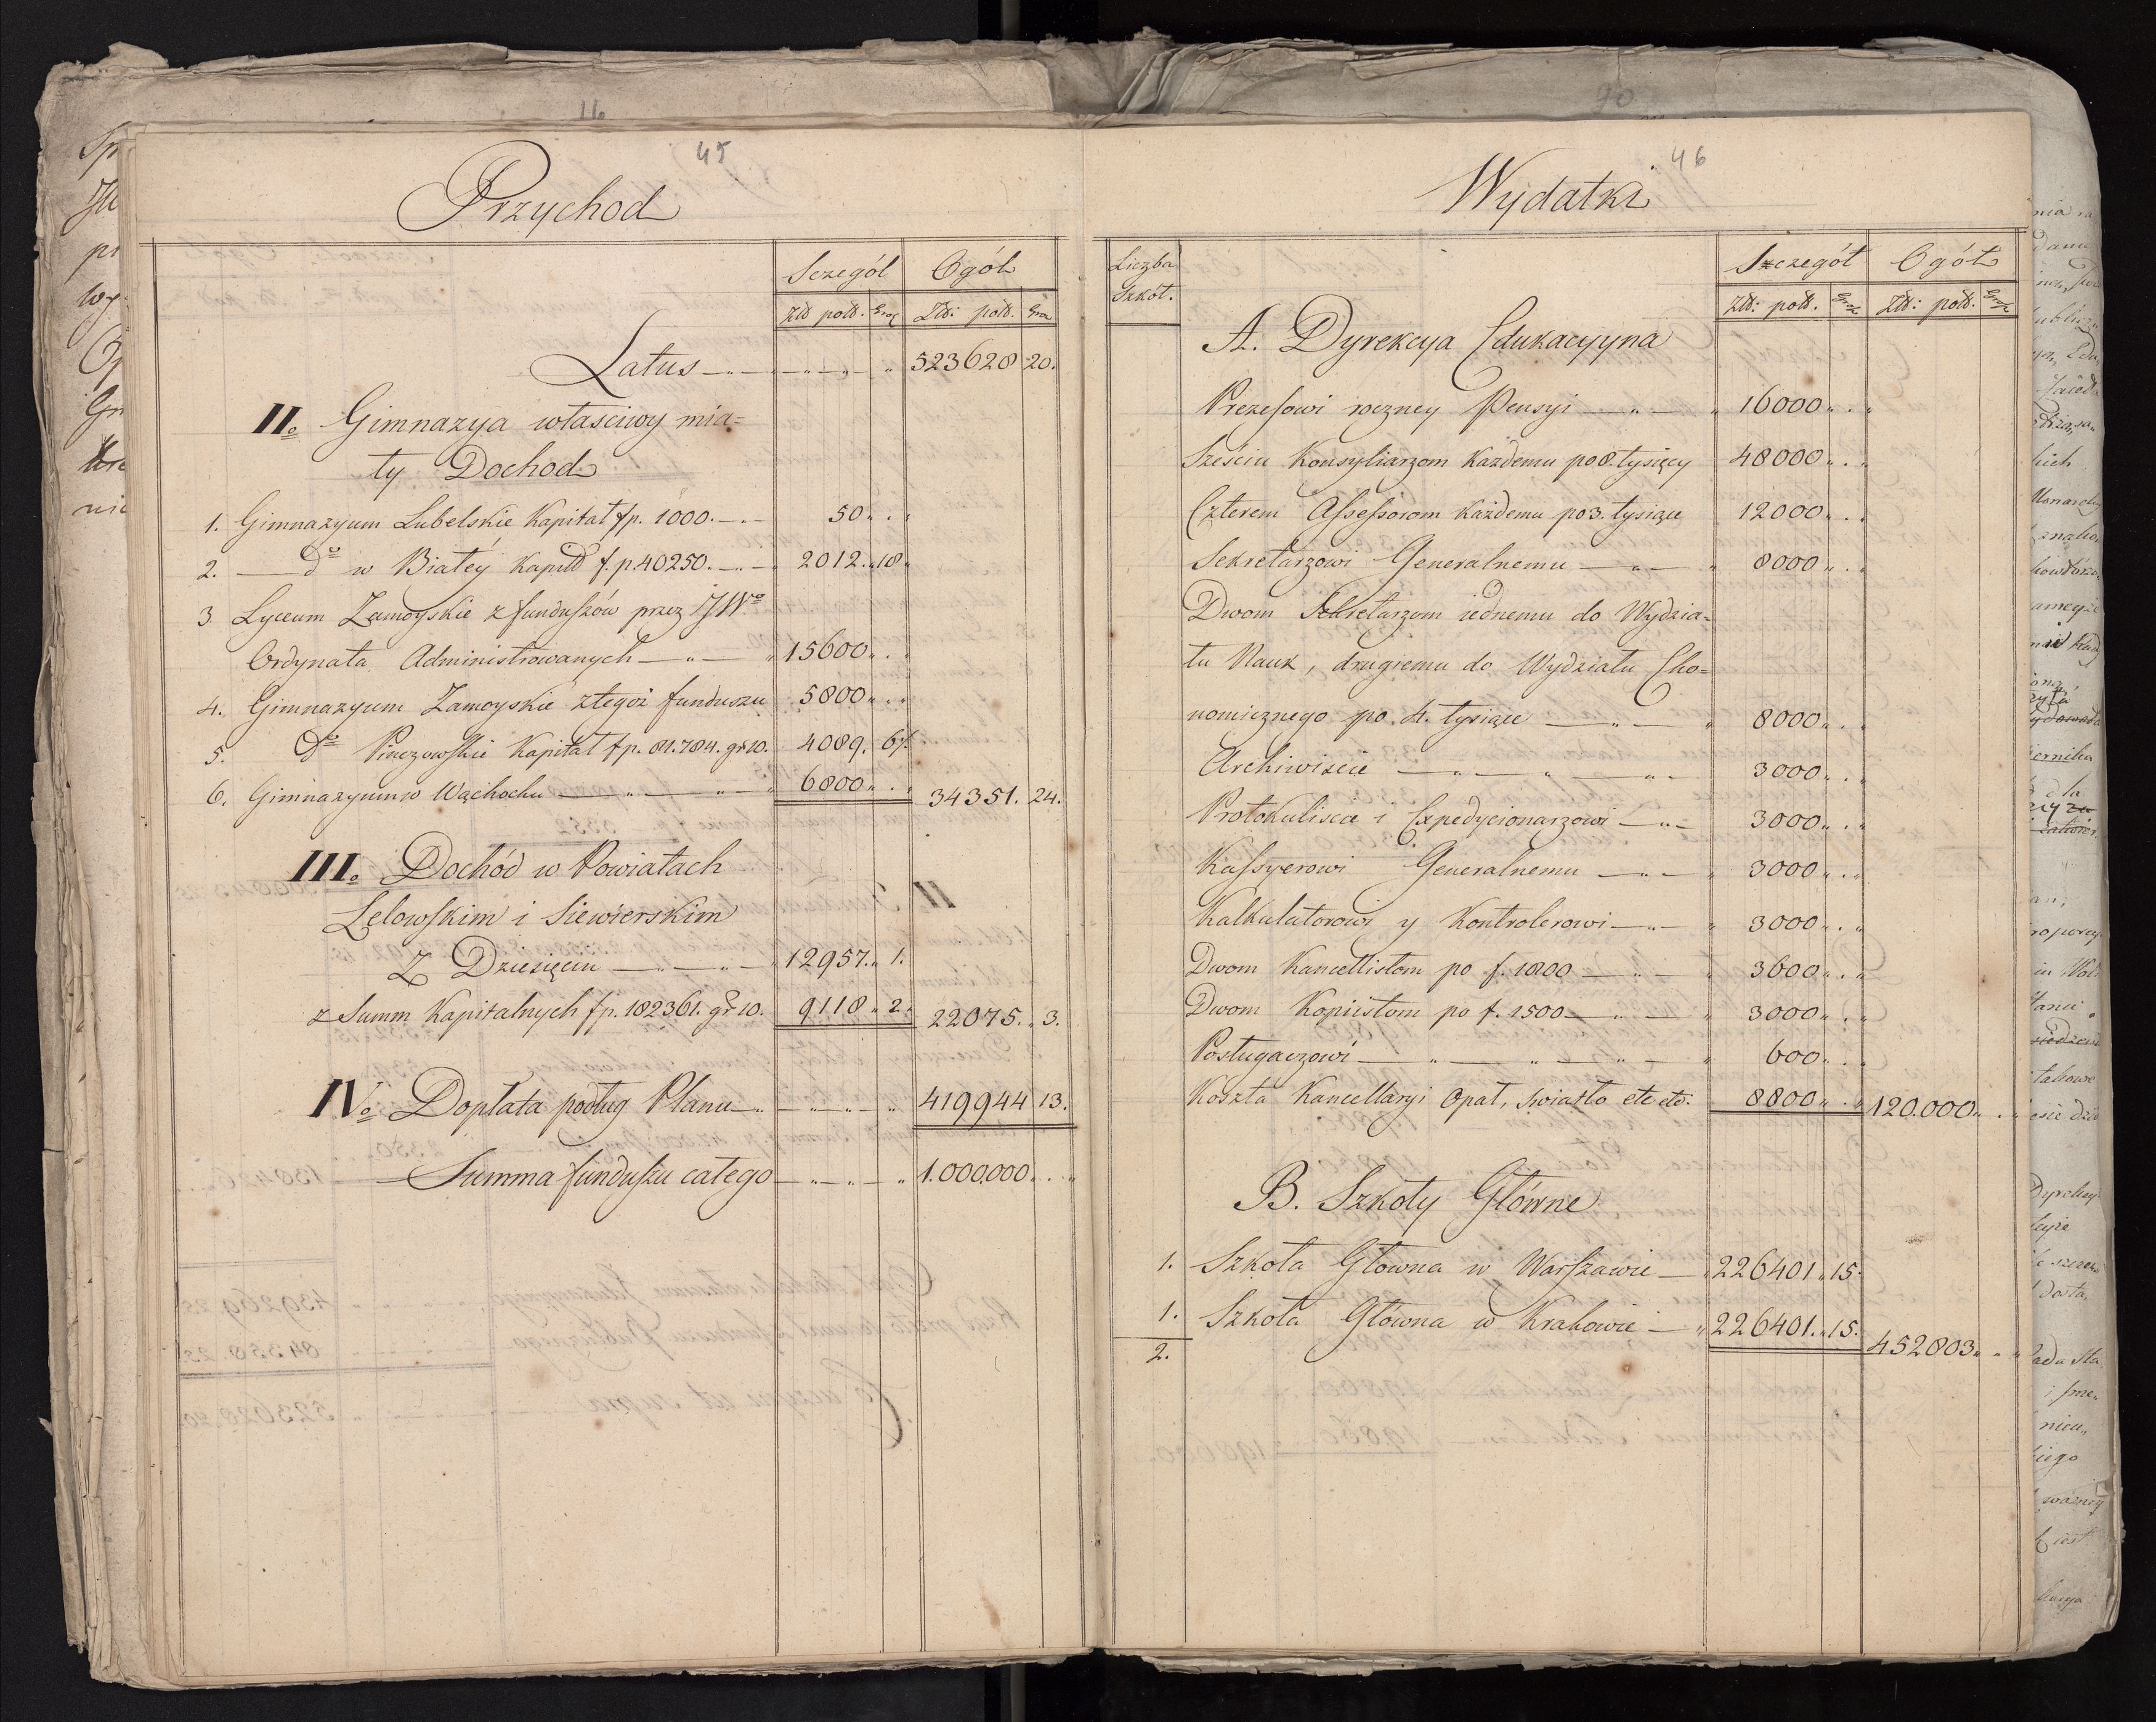 45
Przychod
Sczegól Ogół
Złł polł. Gro. Złł: polł. Gro
Latus 523628 20.
IIo Gimnazya własciwy mia=
ty Dochod
1. Gimnazyum Lubelskie Kapitał fp. 1000. 50
2. do w Białéy Kapitł f.p. 40250. 2012. 18
3 Lyceum Zamoyskie z funduszów przez JWo
Ordynata Administrowanych 15600
4. Gimnazyum Zamoyskie ztegoż funduszu 5800
5. do Pinczowskie Kapitał fp. 81.784. gr 10. 4089. 6
6. Gimnazyum w Wąchocku 6800 34351. 24.
IIIo Dochód w Powiatach
Lelowskim i Siewierskim
Z Dziesięcin 12957. 1.
z Summ Kapitalnych fp. 182361. gr 10. 9118 2. 22075. 3.
IVo Dopłata podług Planu 419944 13.
Summa funduszu całego 1.000.000
46
Wydatki
Liczba Szkół. Szczegół Ogół
Złł: polł. Grosz Złł: polł. Grosz
A. Dyrekcya Edukacyyna
Prezesowi roczney Pensyi 16000
Sześciu Konsyliarzom Każdemu po 8. tysięcy 48000
Czterem Assessorom Każdemu po 3. tysiące 12000
Sekretarzowi Generalnemu 8000
Dwom Sekretarzom iednemu do Wydzia=
łu Nauk, drugiemu do Wydziału Cho=
nomicznego po. 4. tysiące 8000
Archiwiscie 3000
Protokuliscie i Expedycionarzowi 3000
Kassyerowi Generalnemu 3000
Kalkulatorowi y Kontrolerowi 3000
Dwom Kancellistom po f. 1800 3600
Dwom Kopiistom po f. 1500 3000
Posługaczowi 600
Koszta Kancellaryi Opał, swiatło etc etc. 8800 120.000
B. Szkoły Główne
1. Szkoła Głowna w Warszawie 226401 15.
1. Szkoła Główna w Krakowie 226401. 15.
2. 452803